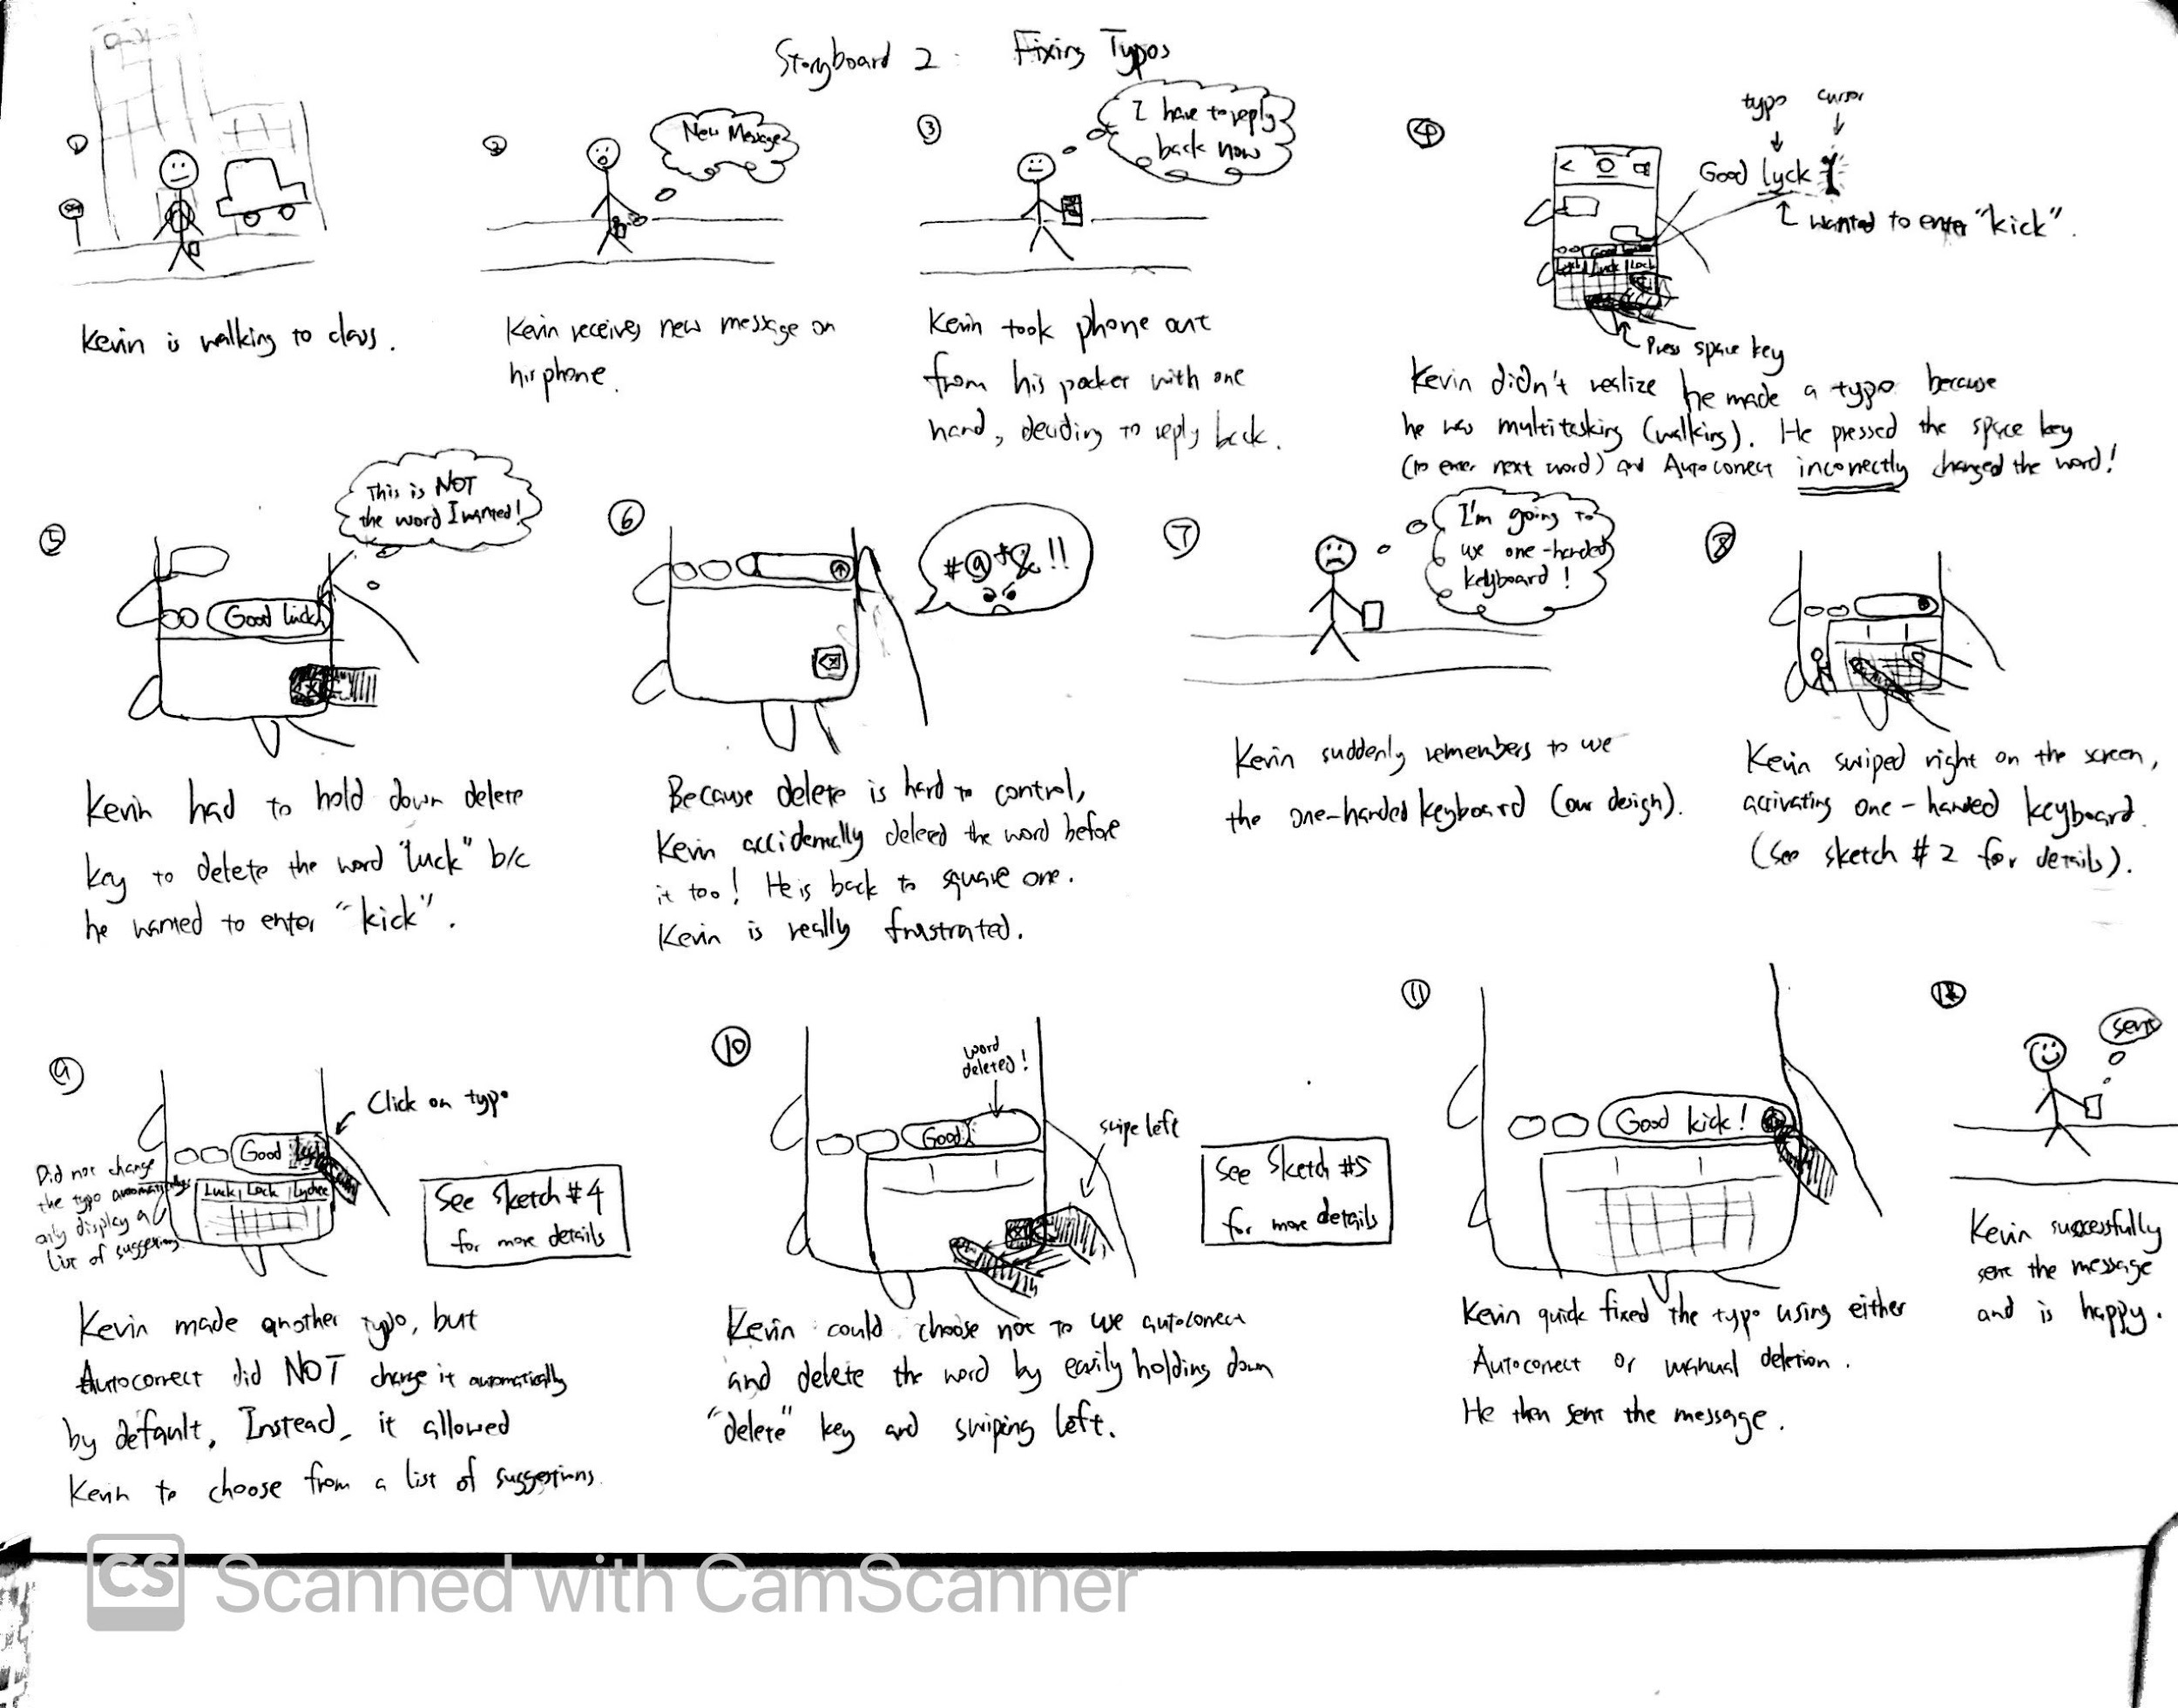 Storyboard 2: Fixing Typos
①
Kevin is walking to class.
②
New Message
Kevin receives new message on
his phone.
③
I have to reply
back now
Kevin took phone out
from his pocket with one
hand, deciding to reply back.
④
typo cursor
Good lyck
Wanted to enter "kick".
Luck Lock
Press space key
Kevin didn't realize he made a typo because
he was multitasking (walking). He pressed the space key
(to enter next word) and Autocorrect incorrectly changed the word!
⑤
This is NOT
the word I wanted!
Good luck
Kevin had to hold down delete
key to delete the word "luck" b/c
he wanted to enter "kick".
⑥
#@*&!!
Because delete is hard to control,
Kevin accidentally deleted the word before
it too! He is back to square one.
Kevin is really frustrated.
⑦
I'm going to
use one-handed
keyboard!
Kevin suddenly remembers to use
the one-handed keyboard (our design).
⑧
Kevin swiped right on the screen,
activating one-handed keyboard.
(See sketch #2 for details).
⑨
Click on typo
Good
Did not change
the typo automatically,
only display a
list of suggestions
Luck Lock Lychee
See Sketch #4
for more details
Kevin made another typo, but
Autocorrect did NOT change it automatically
by default. Instead, it allowed
Kevin to choose from a list of suggestions.
⑩
word
deleted!
Good
swipe left
See Sketch #5
for more details
Kevin could choose not to use autocorrect
and delete the word by easily holding down
"delete" key and swiping left.
⑪
Good kick!
Kevin quick fixed the typo using either
Autocorrect or manual deletion.
He then sent the message.
⑫
sent
Kevin successfully
sent the message
and is happy.
CS Scanned with CamScanner